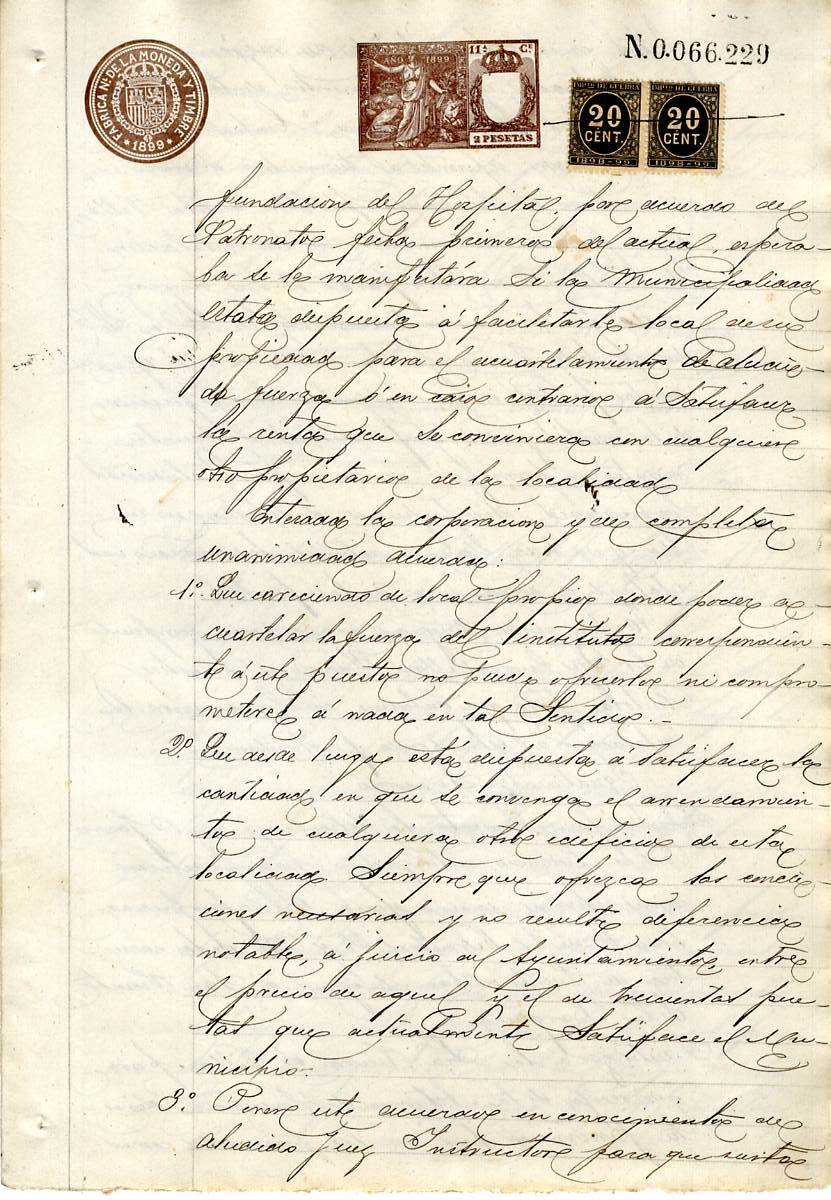 FABRICA NL. DE LA MONEDA Y TIMBRE
* 1899 *
AÑO 1899
11ª Cª
2 PESETAS
IMPTO DE GUERRA
20
CENT.
1898-99
IMPTO DE GUERRA
20
CENT.
1898-99
N.0.066.229
fundacion del Hospital, por acuerdo del
Patronato fecha primero del actual, espera-
ba se le manifestára si la Municipalidad
estaba dispuesta á facilitarle local de su
propiedad para el acuartelamiento de aluci-
da fuerza ó en caso contrario á satisfacer
la renta que se conviniera con cualquiera
otro propietario de la localidad
Enterada la corporacion y de completa
unanimidad acuerda:
1.º Que careciendo de local propio donde poder a-
cuartelar la fuerza del instituto correspondien-
te á este puesto no puede ofrecerlo ni compro-
meterse á nada en tal sentido.-
2.º Que desde luego está dispuesta á satisfacer la
cantidad en que se convenga el arrendamien-
to de cualquiera otro edificio de esta
localidad siempre que ofrezca las condi-
ciones necesarias y no resulte diferencia
notable, á juicio del Ayuntamiento, entre
el precio de aquel y el de trescientas pese-
tas que actualmente satisface el Mu-
nicipio.
3.º Poner este acuerdo en conocimiento del
aludido Juez Instructor para que surta